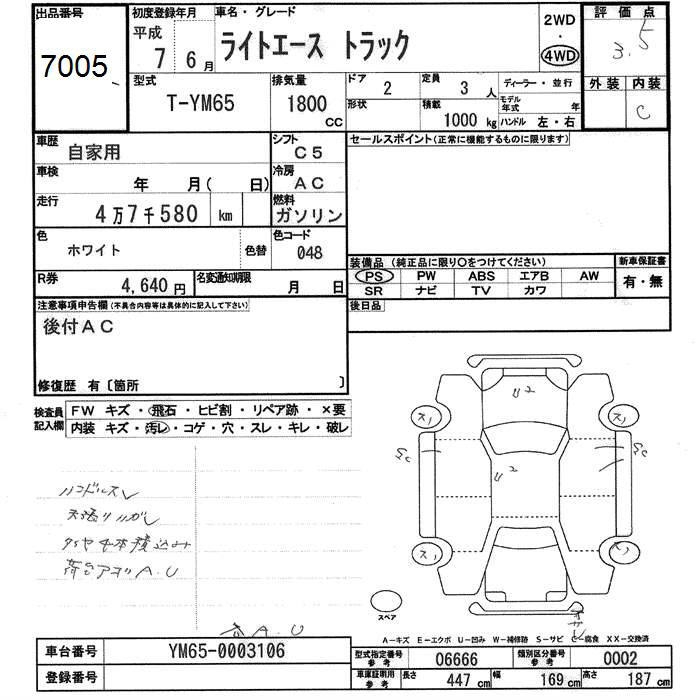 出品番号
7005
初度登録年月
平成
7年 6月
車名・グレード
ライトエース トラック
2WD
・
4WD
評価点
3.5
外装 内装
C
型式
T-YM65
排気量
1800
CC
ドア
2
形状
定員
3 人
積載
1000 kg
ディーラー・並行
モデル年式 年
ハンドル 左・右
車歴
自家用
シフト
C5
セールスポイント(正常に機能するものに限ります)
車検
年 月( 日)
冷房
AC
走行
4万7千580 km
燃料
ガソリン
色
ホワイト
色替
色コード
048
装備品 (純正品に限り○をつけてください)
PS PW ABS エアB AW
SR ナビ TV カワ
新車保証書
有・無
R券
4,640円
名変通知期限
月 日
後日品
注意事項申告欄(不具合内容等は具体的に記入して下さい)
後付AC
修復歴 有〔箇所 〕
検査員記入欄
FW キズ・飛石・ヒビ割・リペア跡・×要
内装 キズ・汚レ・コゲ・穴・スレ・キレ・破レ
ハンドルスレ
天張リハガレ
タイヤ4本積込み
荷台アオリA.U
A.U
U2
U2
ス1
ス1
ス1
ス1
スペア
A-キズ E-エクボ U-凹み W-補修跡 S-サビ C-腐食 XX-交換済
車台番号
YM65-0003106
登録番号
型式指定番号
参考
06666
類別区分番号
参考
0002
車庫証明用
参考
長さ 447 cm 幅 169 cm 高さ 187 cm